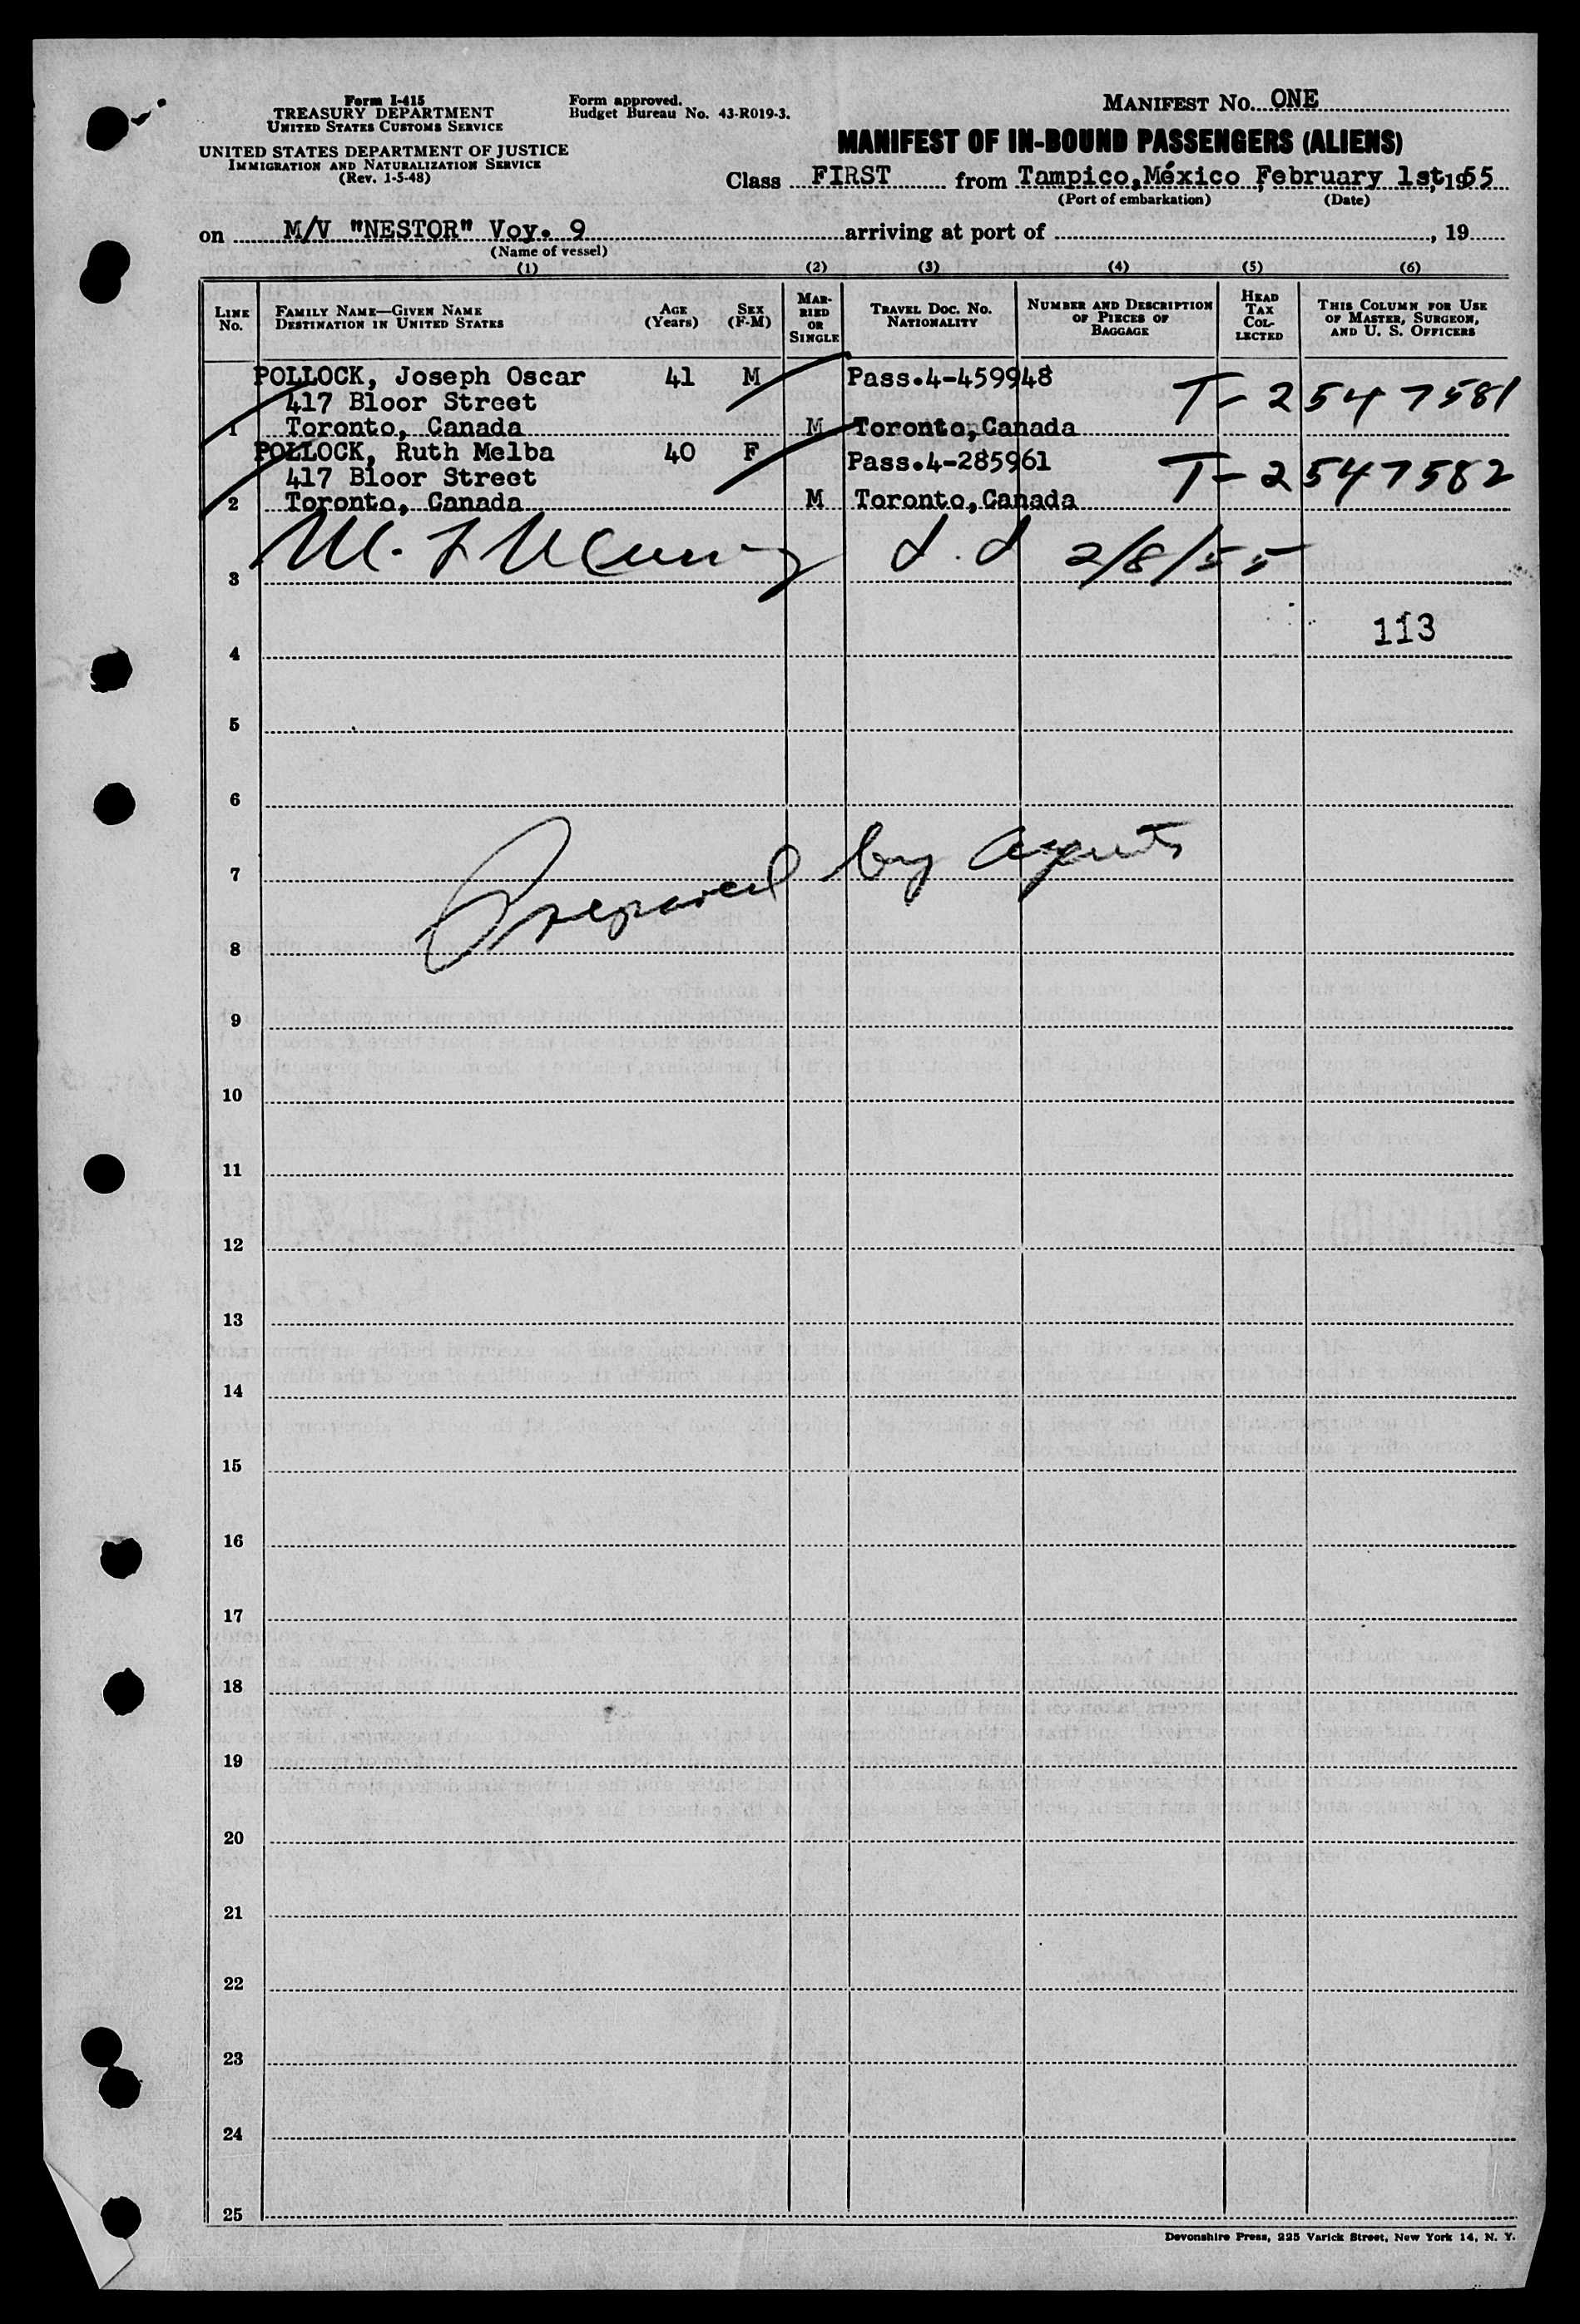 Form I-415
TREASURY DEPARTMENT
UNITED STATES CUSTOMS SERVICE
UNITED STATES DEPARTMENT OF JUSTICE
IMMIGRATION AND NATURALIZATION SERVICE
(Rev. 1-5-48)
Form approved.
Budget Bureau No. 43-R019-3.
MANIFEST NO. ONE
MANIFEST OF IN-BOUND PASSENGERS (ALIENS)
Class FIRST from Tampico,México February 1st, 1955
(Port of embarkation) (Date)
on M/V "NESTOR" Voy. 9 arriving at port of , 19
(Name of vessel)
(1) (2) (3) (4) (5) (6)
LINE NO. FAMILY NAME—GIVEN NAME DESTINATION IN UNITED STATES AGE (Years) SEX (F-M) MARRIED OR SINGLE TRAVEL DOC. NO. NATIONALITY NUMBER AND DESCRIPTION OF PIECES OF BAGGAGE HEAD TAX COLLECTED THIS COLUMN FOR USE OF MASTER, SURGEON, AND U. S. OFFICERS
POLLOCK, Joseph Oscar 41 M Pass.4-459948 T-2547581
417 Bloor Street
1 Toronto, Canada M Toronto,Canada
POLLOCK, Ruth Melba 40 F Pass.4-285961 T-2547582
417 Bloor Street
2 Toronto, Canada M Toronto,Canada
3 2/8/55
4 113
5
6
7 Prepared by agents
8
9
10
11
12
13
14
15
16
17
18
19
20
21
22
23
24
25
Devonshire Press, 225 Varick Street, New York 14, N. Y.